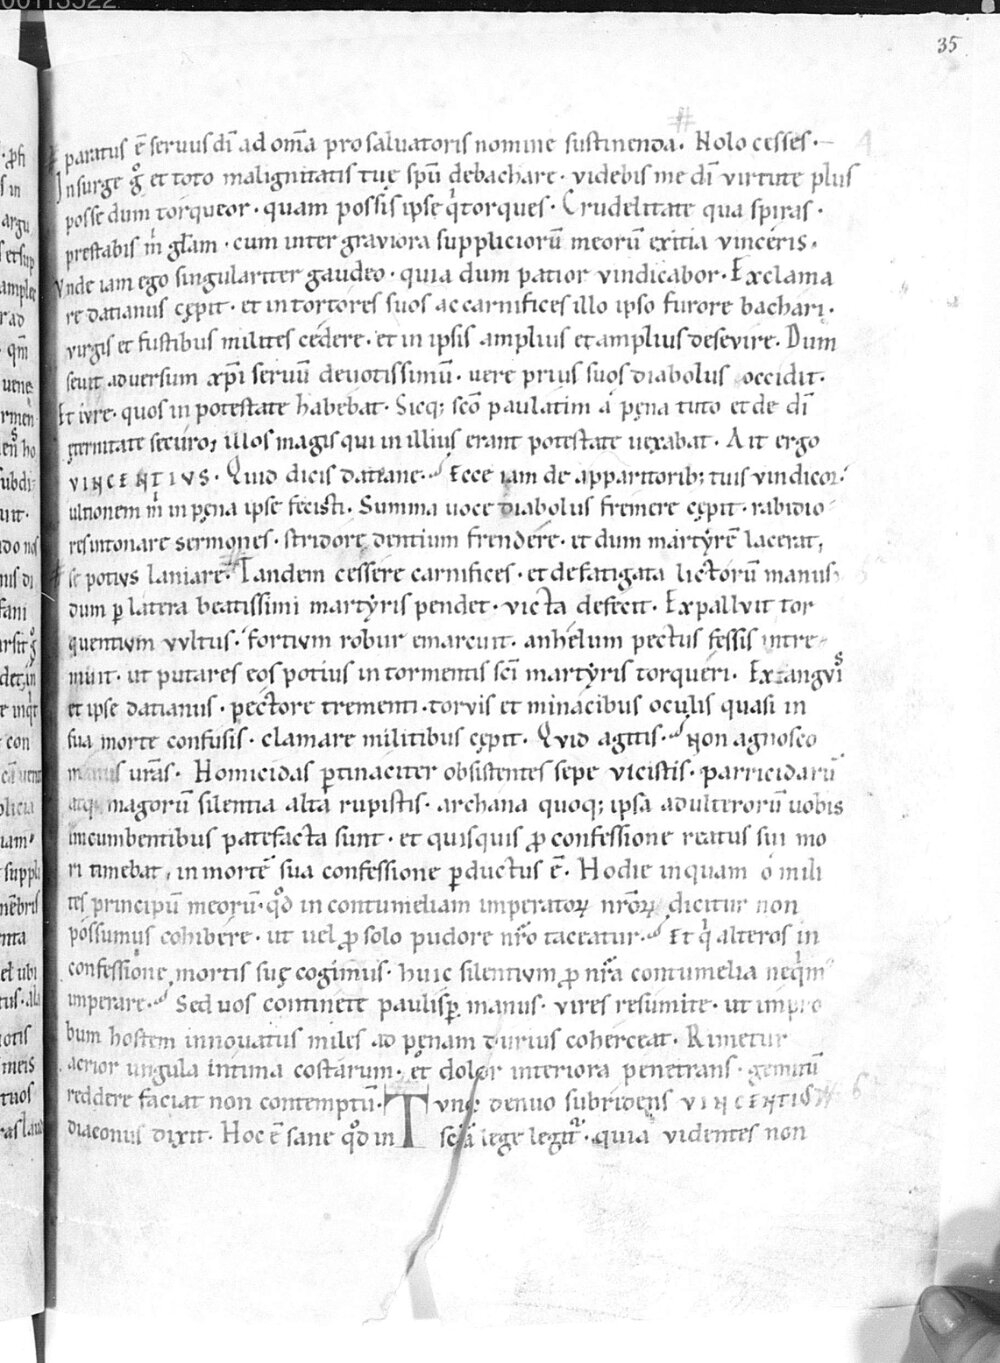 00113522
35
paratus ē seruus dī ad om̄a pro saluatoris nomine sustinenda. Nolo cesses.
Insurge gͦ et toto malignitatis tuę spū debachare. videbis me dī virtute plus
posse dum torqueor. quam possis ipse q̇ torques. Crudelitate qua spiras.
prestabis ṁ gl̄am. cum inter graviora suppliciorū meorū exitia vinceris.
Vnde iam ego singulariter gaudeo. quia dum patior vindicabor. Exclama
re datianus cępit. et in tortores suos ac carnifices illo ipso furore bachari.
virgis et fustibus milites cędere. et in ipsis amplius et amplius desevire. Dum
seuit aduersum xp̄i seruū deuotissimū. uere prius suos diabolus occidit.
Et ivre. quos in potestate habebat. Sicq; scō paulatim a pęna tuto et de dī
ęternitate securo; illos magis qui in illius erant potestate uexabat. Ait ergo
VINCENTIVS. Quid dicis datiane. Ecce iam de apparitorib; tuis vindicor.
ultionem ṁ in pęna ipse fecisti. Summa uoce diabolus fremere cępit. rabidio
res intonare sermones. stridore dentium frendere. et dum martẏrē lacerat,
se potivs laniare. Tandem cessere carnifices. et defatigata lictorū manus.
dum p̱ latera beatissimi martẏris pendet. victa defecit. Expallvit tor
quentivm vvltus. fortivm robur emarcuit. anhelum pectus fessis intre
muit. ut putares eos potius in tormentis scī martẏris torqueri. Exangvis
et ipse datianus. pectore trementi. torvis et minacibus oculis quasi in
sua morte confusis. clamare militibus cępit. Qvid agitis. Non agnosco
manus urās. Homicidas p̱tinaciter obsistentes sepe vicistis. parricidarū
atq; magorū silentia alta rupistis. archana quoq; ipsa adulterorū uobis
incumbentibus patefacta sunt. et quisquis ꝓ confessione reatus sui mo
ri timebat, in mortē sua confessione p̱ductus ē. Hodie inquam o mili
tes principū meorū. qͦd in contumeliam imperatoꝝ nr̄oꝝ dicitur non
possumus cohibere. ut uel ꝓ solo pudore nr̄o taceatur. Et q̇ alteros in
confessione mortis suę cogimus. huic silentivm ꝓ nr̄a contumelia neq̇m
imperare. Sed uos continete paulisp̱ manus. vires resumite. ut impro
bum hostem innouatus miles ad pęnam durius coherceat. Rimetur
acrior ungula intima costarum. et dolor interiora penetrans. gemitū
reddere faciat non contemptū. Tvnc denuo subridens VINCENTIVS
diaconus dixit. Hoc ē sane qͦd in scā lege legit᷑. quia videntes non